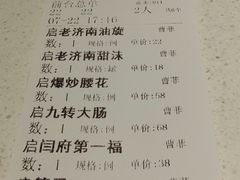 前台总单
22 22 2人
07-22 17:16
启老济南油旋 曹菲
数：1 规格:例 单价:22
启老济南甜沫 曹菲
数：1 规格:罐 单价:18
启爆炒腰花 曹菲
数：1 规格:例 单价:58
启九转大肠 曹菲
数：1 规格:例 单价:68
启闫府第一福 曹菲
数：1 规格:例 单价:38